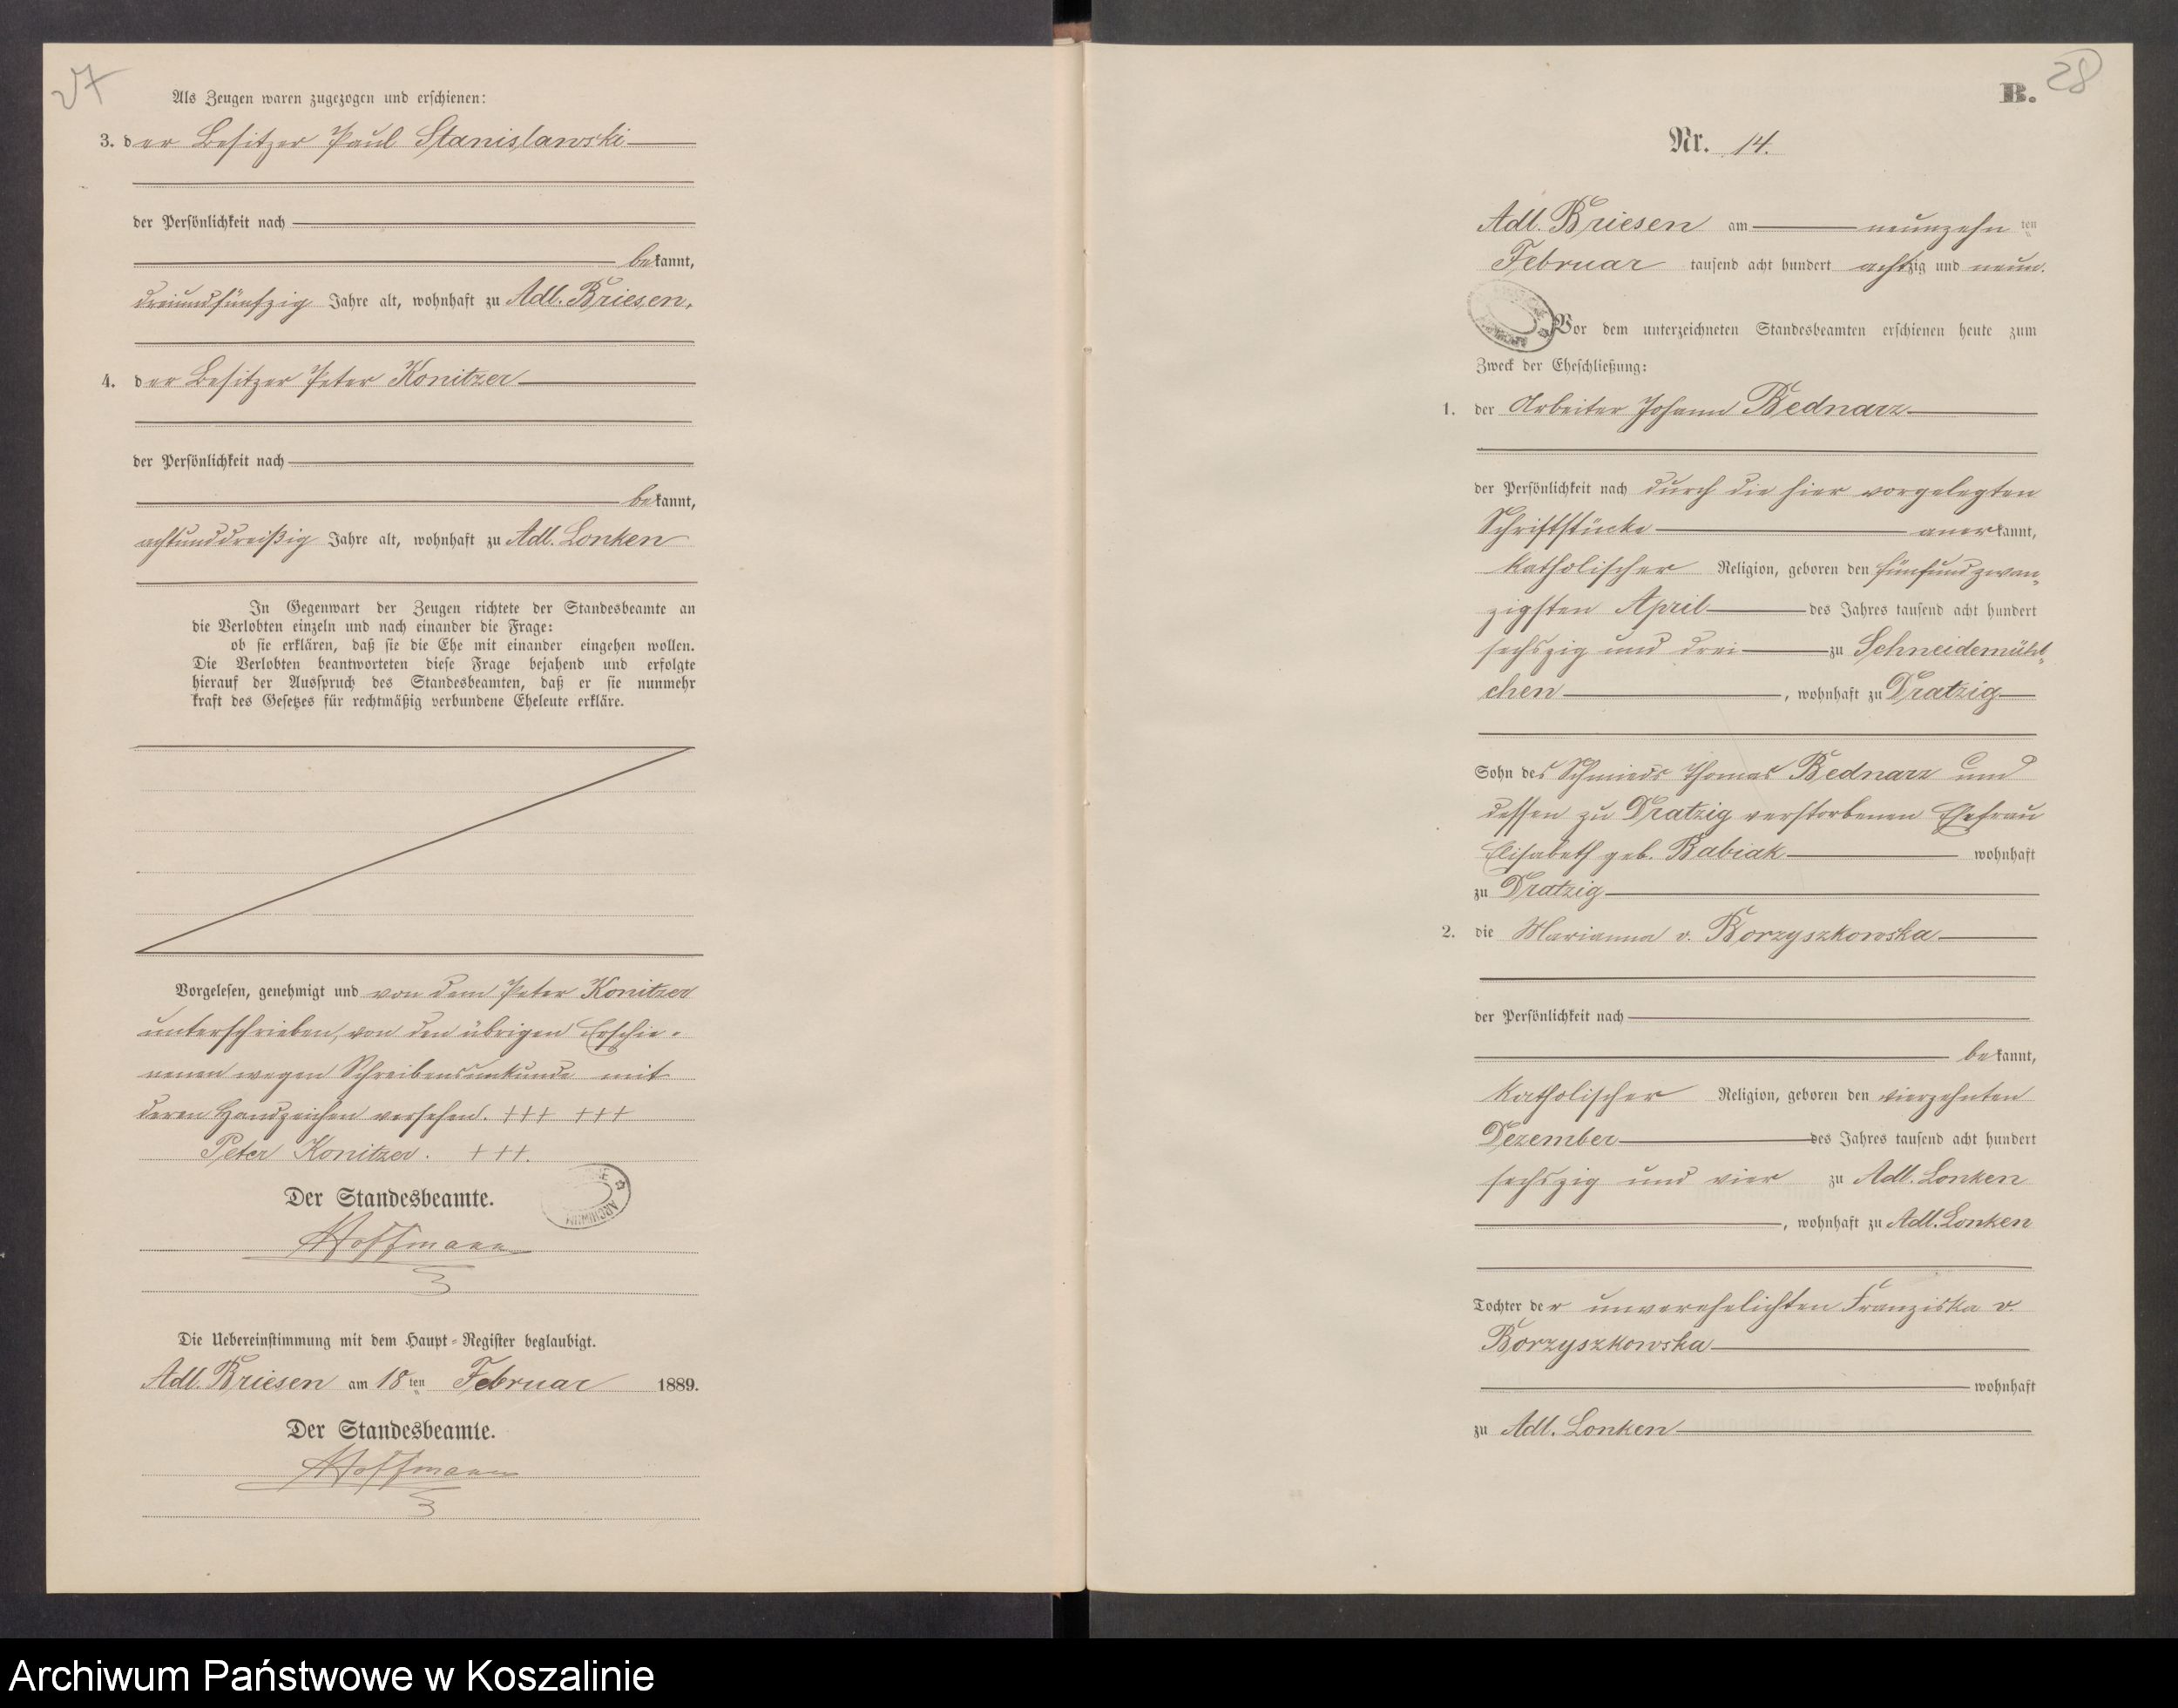 27
Als Zeugen waren zugezogen und erschienen:
3. der Besitzer Paul Stanislawski
der Persönlichkeit nach
bekannt,
dreiundfünfzig Jahre alt, wohnhaft zu Adl. Briesen,
4. der Besitzer Peter Konitzer
der Persönlichkeit nach
bekannt,
achtunddreißig Jahre alt, wohnhaft zu Adl. Lonken
In Gegenwart der Zeugen richtete der Standesbeamte an
die Verlobten einzeln und nach einander die Frage:
ob sie erklären, daß sie die Ehe mit einander eingehen wollen.
Die Verlobten beantworteten diese Frage bejahend und erfolgte
hierauf der Ausspruch des Standesbeamten, daß er sie nunmehr
kraft des Gesetzes für rechtmäßig verbundene Eheleute erkläre.
Vorgelesen, genehmigt und von dem Peter Konitzer
unterschrieben, von den übrigen Erschie-
nenen wegen Schreibensunkunde mit
deren Handzeichen versehen. +++ +++
Peter Konitzer. +++.
Der Standesbeamte.
ARCHIWUM
Hoffmann
Die Uebereinstimmung mit dem Haupt-Register beglaubigt.
Adl. Briesen am 18ten Februar 1889.
Der Standesbeamte.
Hoffmann
28
B.
Nr. 14.
Adl. Briesen am neunzehnten
Februar tausend acht hundert achtzig und neun.
Vor dem unterzeichneten Standesbeamten erschienen heute zum
Zweck der Eheschließung:
1. der Arbeiter Johann Bednarz
der Persönlichkeit nach durch die hier vorgelegten
Schriftstücke anerkannt,
katholischer Religion, geboren den fünfundzwan-
zigsten April des Jahres tausend acht hundert
sechszig und drei zu Schneidemühl-
chen, wohnhaft zu Dratzig
Sohn des Schmieds Thomas Bednarz und
dessen zu Dratzig verstorbenen Ehefrau
Elisabeth geb. Babiak wohnhaft
zu Dratzig
2. die Marianna v. Borzyszkowska
der Persönlichkeit nach
bekannt,
katholischer Religion, geboren den vierzehnten
Dezember des Jahres tausend acht hundert
sechszig und vier zu Adl. Lonken
, wohnhaft zu Adl. Lonken
Tochter der unverehelichten Franziska v.
Borzyszkowska
wohnhaft
zu Adl. Lonken
Archiwum Państwowe w Koszalinie